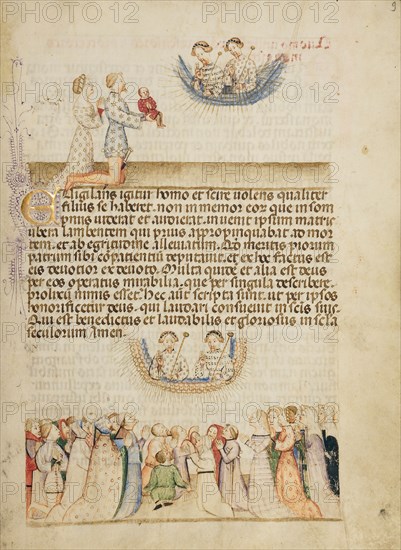 9
Euigilans igitur homo et scire uolens qualiter
filius se haberet. non inmemor eor que in som
pnis uiderat et audierat. inuenit ipsum matris
ubera lambentem qui prius appropinquabat ad mor
tem. et ab egritudine alleuiatum. Quod meritis piorum
patrum sibi copatientiu deputauit. et ex hoc factus est
eis deuotior ex deuoto. Multa quidē et alia est deus
per eos operatus mirabilia. que per singula describere
prolixum nimis esset. Hec autē scripta sunt. ut per ipsos
honorificetur deus. qui laudari consueuit in scīs suis.
Qui est benedictus et laudabilis et gloriosus in scla
seculorum Amen.
PHOTO12